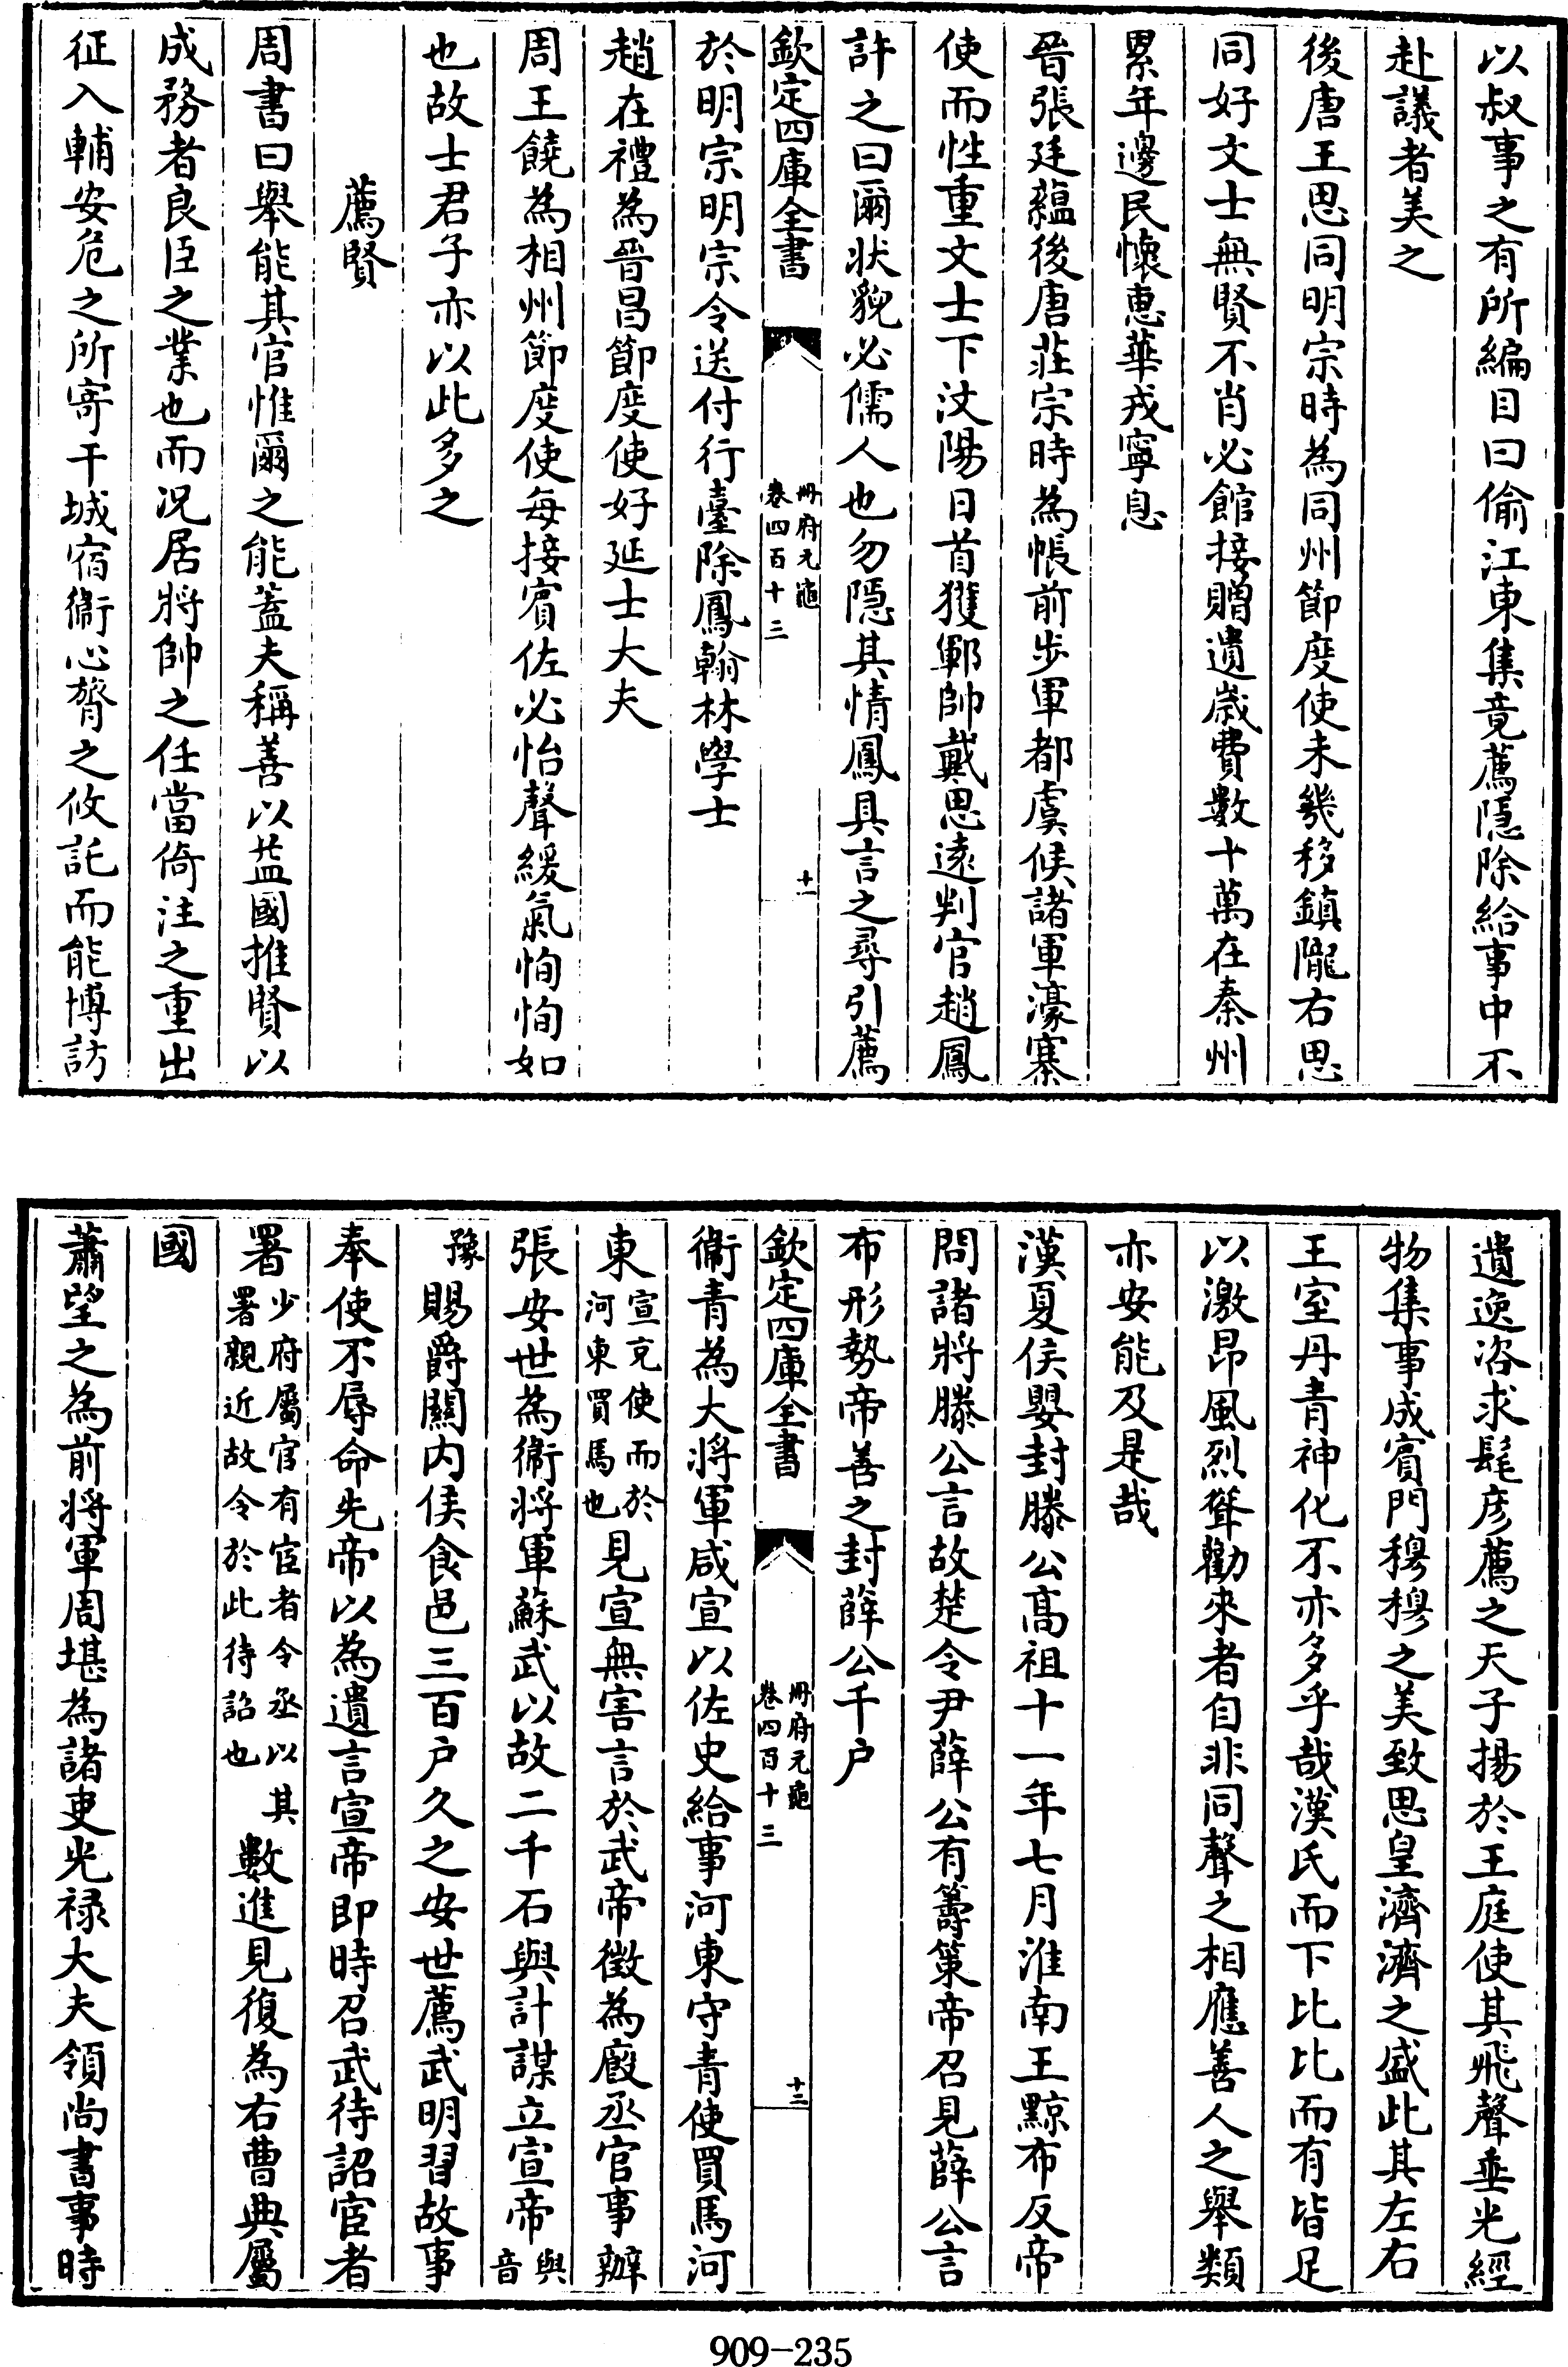 以叔事之有所編目曰偷江東集竟薦隱除給事中不
赴議者美之
後唐王思同明宗時為同州節度使未幾移鎮隴右思
同好文士無賢不肖必館接贈遺歲費數十萬在秦州
累年邊民懷惠華戎寧息
晉張廷蘊後唐莊宗時為帳前步軍都虞候諸軍濠寨
使而性重文士下汶陽日首獲鄆帥戴思遠判官趙鳳
許之曰爾狀貌必儒人也勿隱其情鳳具言之尋引薦
欽定四庫全書
冊府元龜
卷四百十三
十一
於明宗明宗令送付行臺除鳳翰林學士
趙在禮為晉昌節度使好延士大夫
周王饒為相州節度使每接賓佐必怡聲緩氣恂恂如
也故士君子亦以此多之
薦賢
周書曰舉能其官惟爾之能蓋夫稱善以益國推賢以
成務者良臣之業也而况居將帥之任當倚注之重出
征入輔安危之所寄干城宿衞心膂之攸託而能博訪
遺逸咨求髦彥薦之天子揚於王庭使其飛聲垂光經
物集事成賓門穆穆之美致思皇濟濟之盛此其左右
王室丹青神化不亦多乎哉漢氏而下比比而有皆足
以激昂風烈聳勸來者自非同聲之相應善人之舉類
亦安能及是哉
漢夏侯嬰封滕公高祖十一年七月淮南王黥布反帝
問諸將滕公言故楚令尹薛公有籌策帝召見薛公言
布形勢帝善之封薛公千户
欽定四庫全書
冊府元龜
卷四百十三
十二
衞青為大將軍咸宣以佐史給事河東守青使買馬河
東宣充使而於河東買馬也見宣無害言於武帝徵為廏丞官事辦
張安世為衞將軍蘇武以故二千石與計謀立宣帝與音
豫賜爵關内侯食邑三百户久之安世薦武明習故事
奉使不辱命先帝以為遺言宣帝即時召武待詔宦者
署少府屬官有宦者令丞以其署親近故令於此待詔也數進見復為右曹典屬
國
蕭望之為前將軍周堪為諸吏光禄大夫領尚書事時
909-235